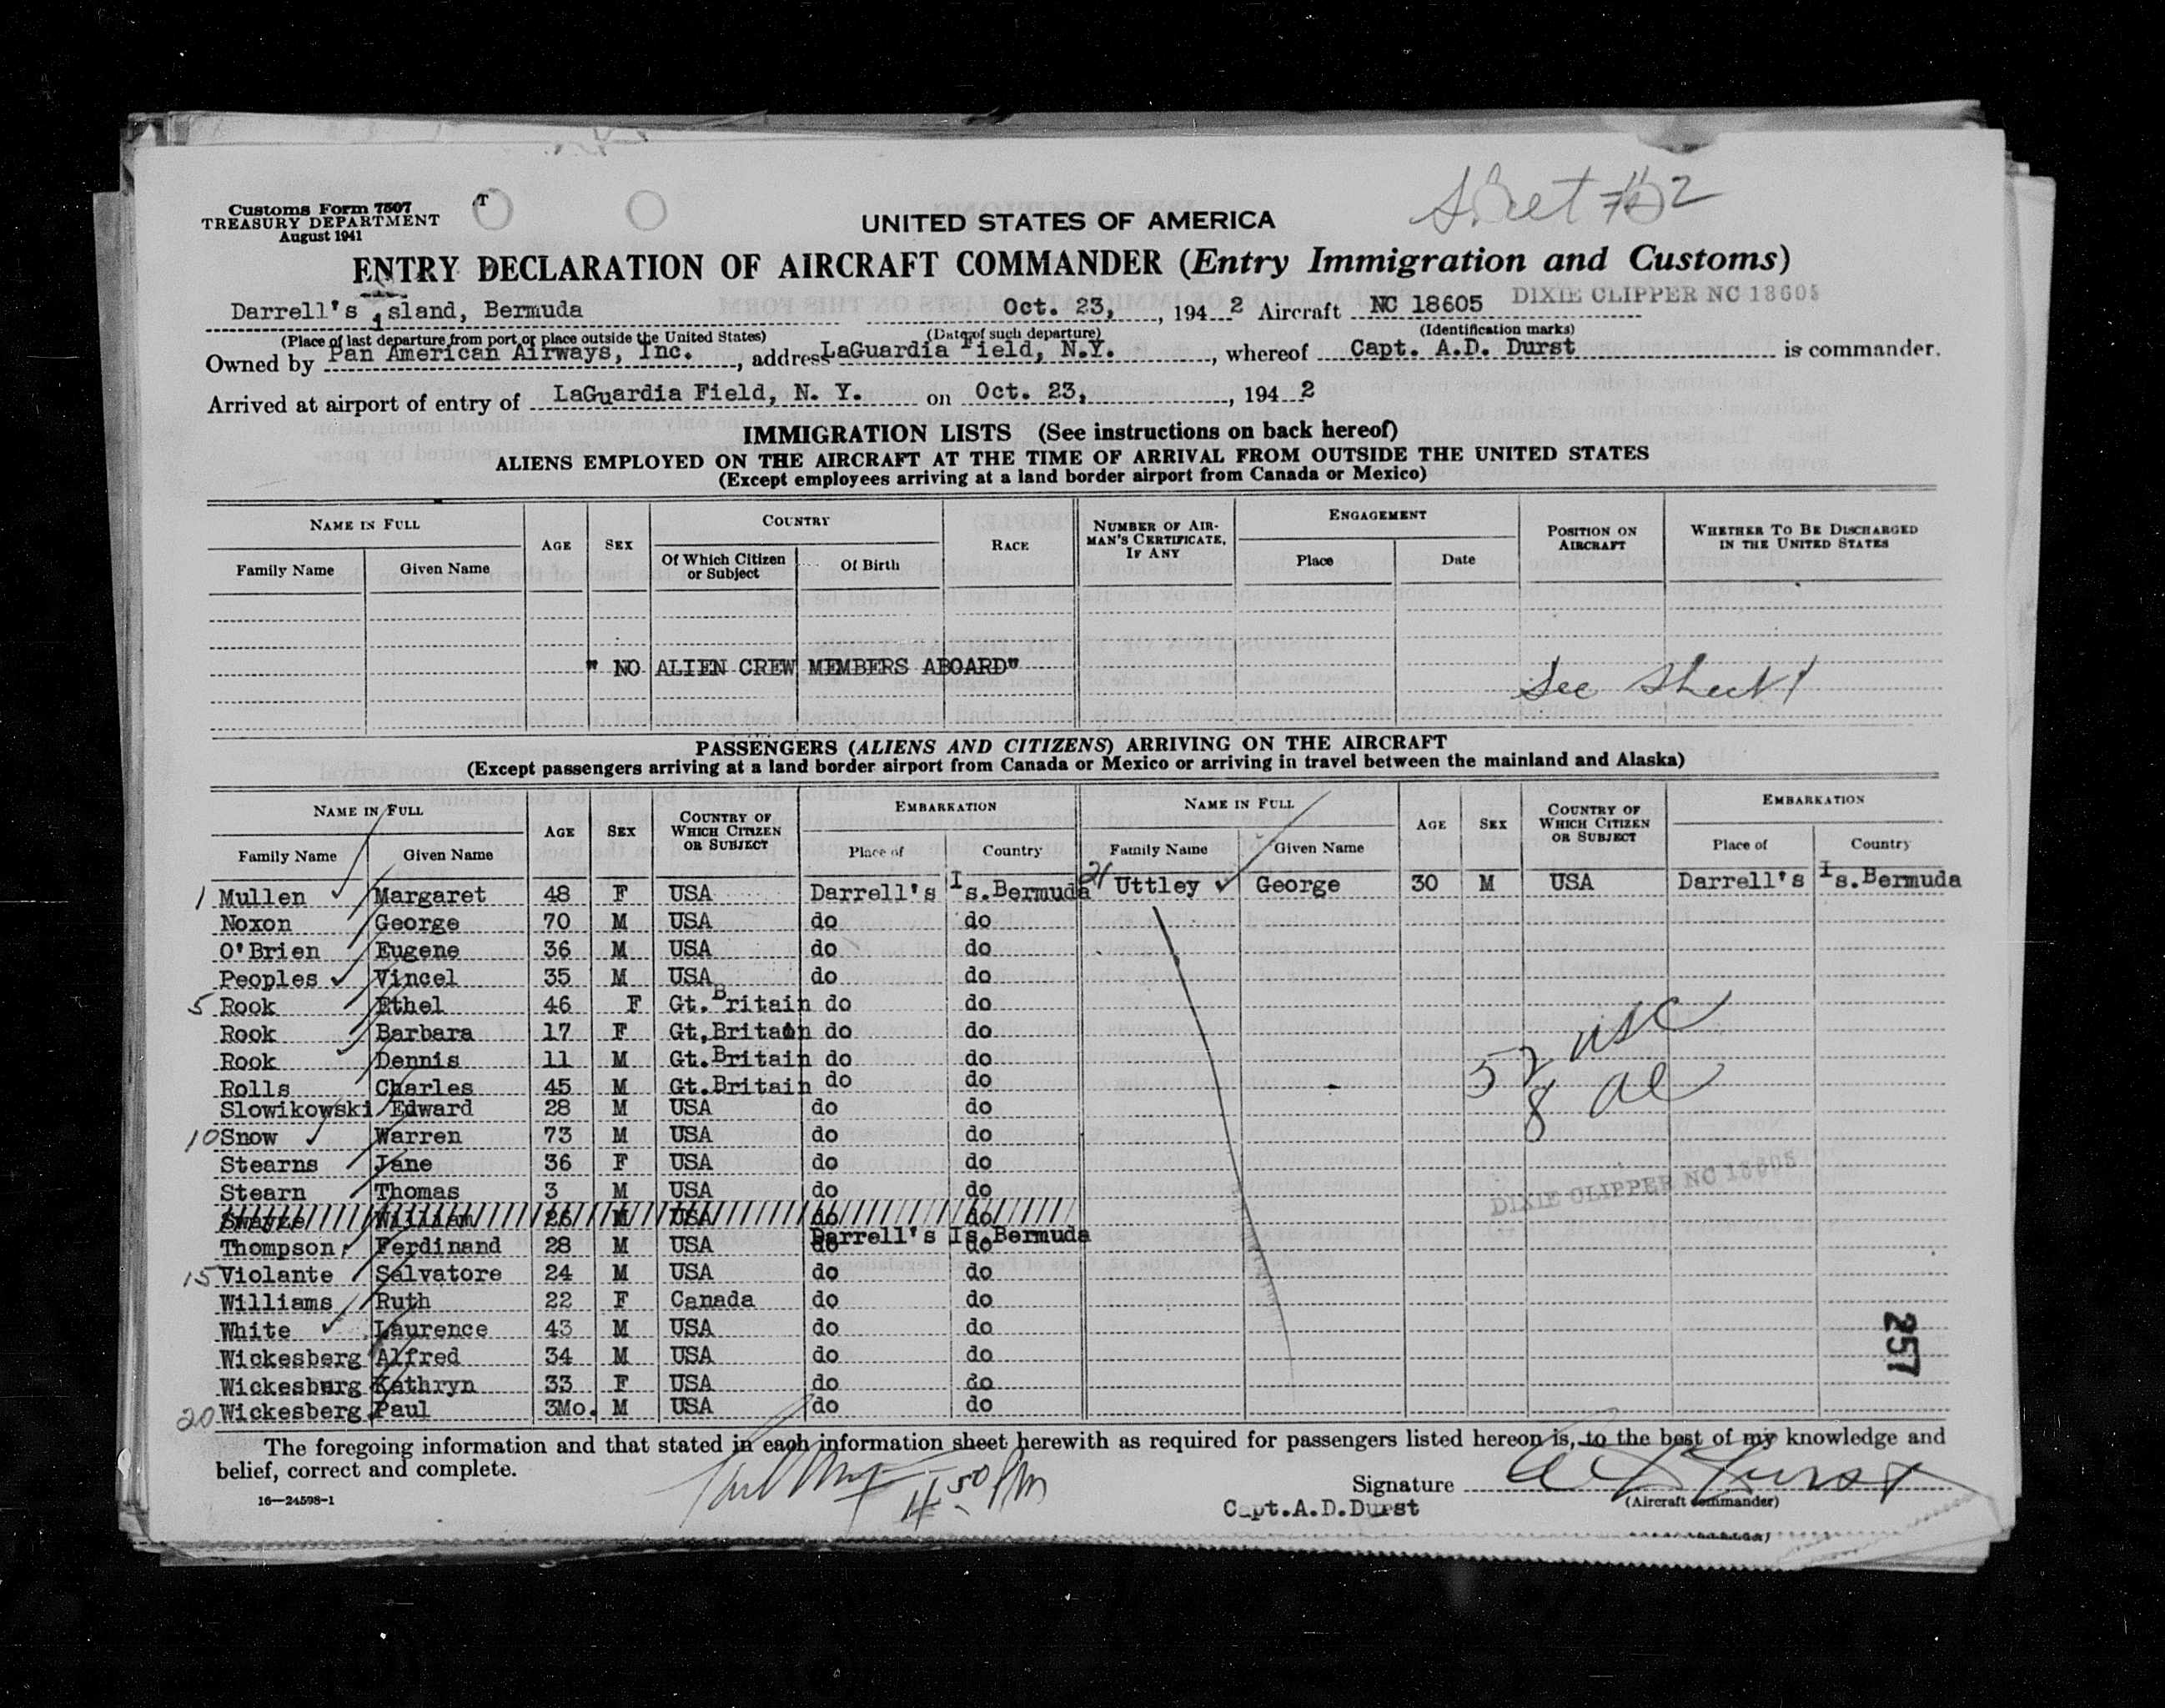 Customs Form 7507
TREASURY DEPARTMENT
August 1941
T
Sheet # 2
UNITED STATES OF AMERICA
ENTRY DECLARATION OF AIRCRAFT COMMANDER (Entry Immigration and Customs)
Darrell's island, Bermuda Oct. 23, , 194 2 Aircraft NC 18605 DIXIE CLIPPER NC 18605
(Place of last departure from port or place outside the United States) (Date of such departure) (Identification marks)
Owned by Pan American Airways, Inc. , address LaGuardia Field, N.Y. , whereof Capt. A.D. Durst is commander.
Arrived at airport of entry of LaGuardia Field, N. Y. on Oct. 23, , 194 2
IMMIGRATION LISTS (See instructions on back hereof)
ALIENS EMPLOYED ON THE AIRCRAFT AT THE TIME OF ARRIVAL FROM OUTSIDE THE UNITED STATES
(Except employees arriving at a land border airport from Canada or Mexico)
NAME IN FULL AGE SEX COUNTRY RACE NUMBER OF AIRMAN'S CERTIFICATE, IF ANY ENGAGEMENT POSITION ON AIRCRAFT WHETHER TO BE DISCHARGED IN THE UNITED STATES
Family Name Given Name Of Which Citizen or Subject Of Birth Place Date
" NO ALIEN CREW MEMBERS ABOARD"
See Sheet 1
PASSENGERS (ALIENS AND CITIZENS) ARRIVING ON THE AIRCRAFT
(Except passengers arriving at a land border airport from Canada or Mexico or arriving in travel between the mainland and Alaska)
NAME IN FULL AGE SEX COUNTRY OF WHICH CITIZEN OR SUBJECT EMBARKATION NAME IN FULL AGE SEX COUNTRY OF WHICH CITIZEN OR SUBJECT EMBARKATION
Family Name Given Name Place of Country Family Name Given Name Place of Country
1 Mullen Margaret 48 F USA Darrell's Is.Bermuda 21 Uttley George 30 M USA Darrell's Is.Bermuda
Noxon George 70 M USA do do
O'Brien Eugene 36 M USA do do
Peoples Vincel 35 M USA do do
5 Rook Ethel 46 F Gt. Britain do do
Rook Barbara 17 F Gt.Britain do do
Rook Dennis 11 M Gt.Britain do do
Rolls Charles 45 M Gt.Britain do do
Slowikowski Edward 28 M USA do do
10 Snow Warren 73 M USA do do
Stearns Jane 36 F USA do do
Stearn Thomas 3 M USA do do
William 26 M USA do do
Thompson Ferdinand 28 M USA Darrell's Is.Bermuda
do do
15 Violante Salvatore 24 M USA do do
Williams Ruth 22 F Canada do do
White Laurence 43 M USA do do
Wickesberg Alfred 34 M USA do do
Wickesburg Kathryn 33 F USA do do
20 Wickesberg Paul 3Mo. M USA do do
52 USC
8 al
DIXIE CLIPPER NC 18605
257
The foregoing information and that stated in each information sheet herewith as required for passengers listed hereon is, to the best of my knowledge and
belief, correct and complete.
4 50 PM
Signature A D Durst
16—24598-1
(Aircraft commander)
Capt.A.D.Durst